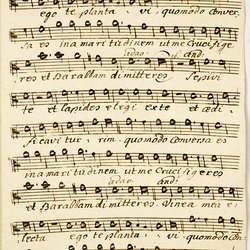 ego te planta vi, quomodo conver,
sa es in a mari tu dinem ut me Cruci fige
adag: and:
res et Barabbam dimitteres Sepivi
te et Lapides elegi ex te et ædi,
ficavi tur, rim. quomodo conversa es
in a mari tu dinem ut me Cruci figeres
adag: and:
et Barabbam dimitteres. Vinea mea e,
lecta ego te planta, vi, quomodo con